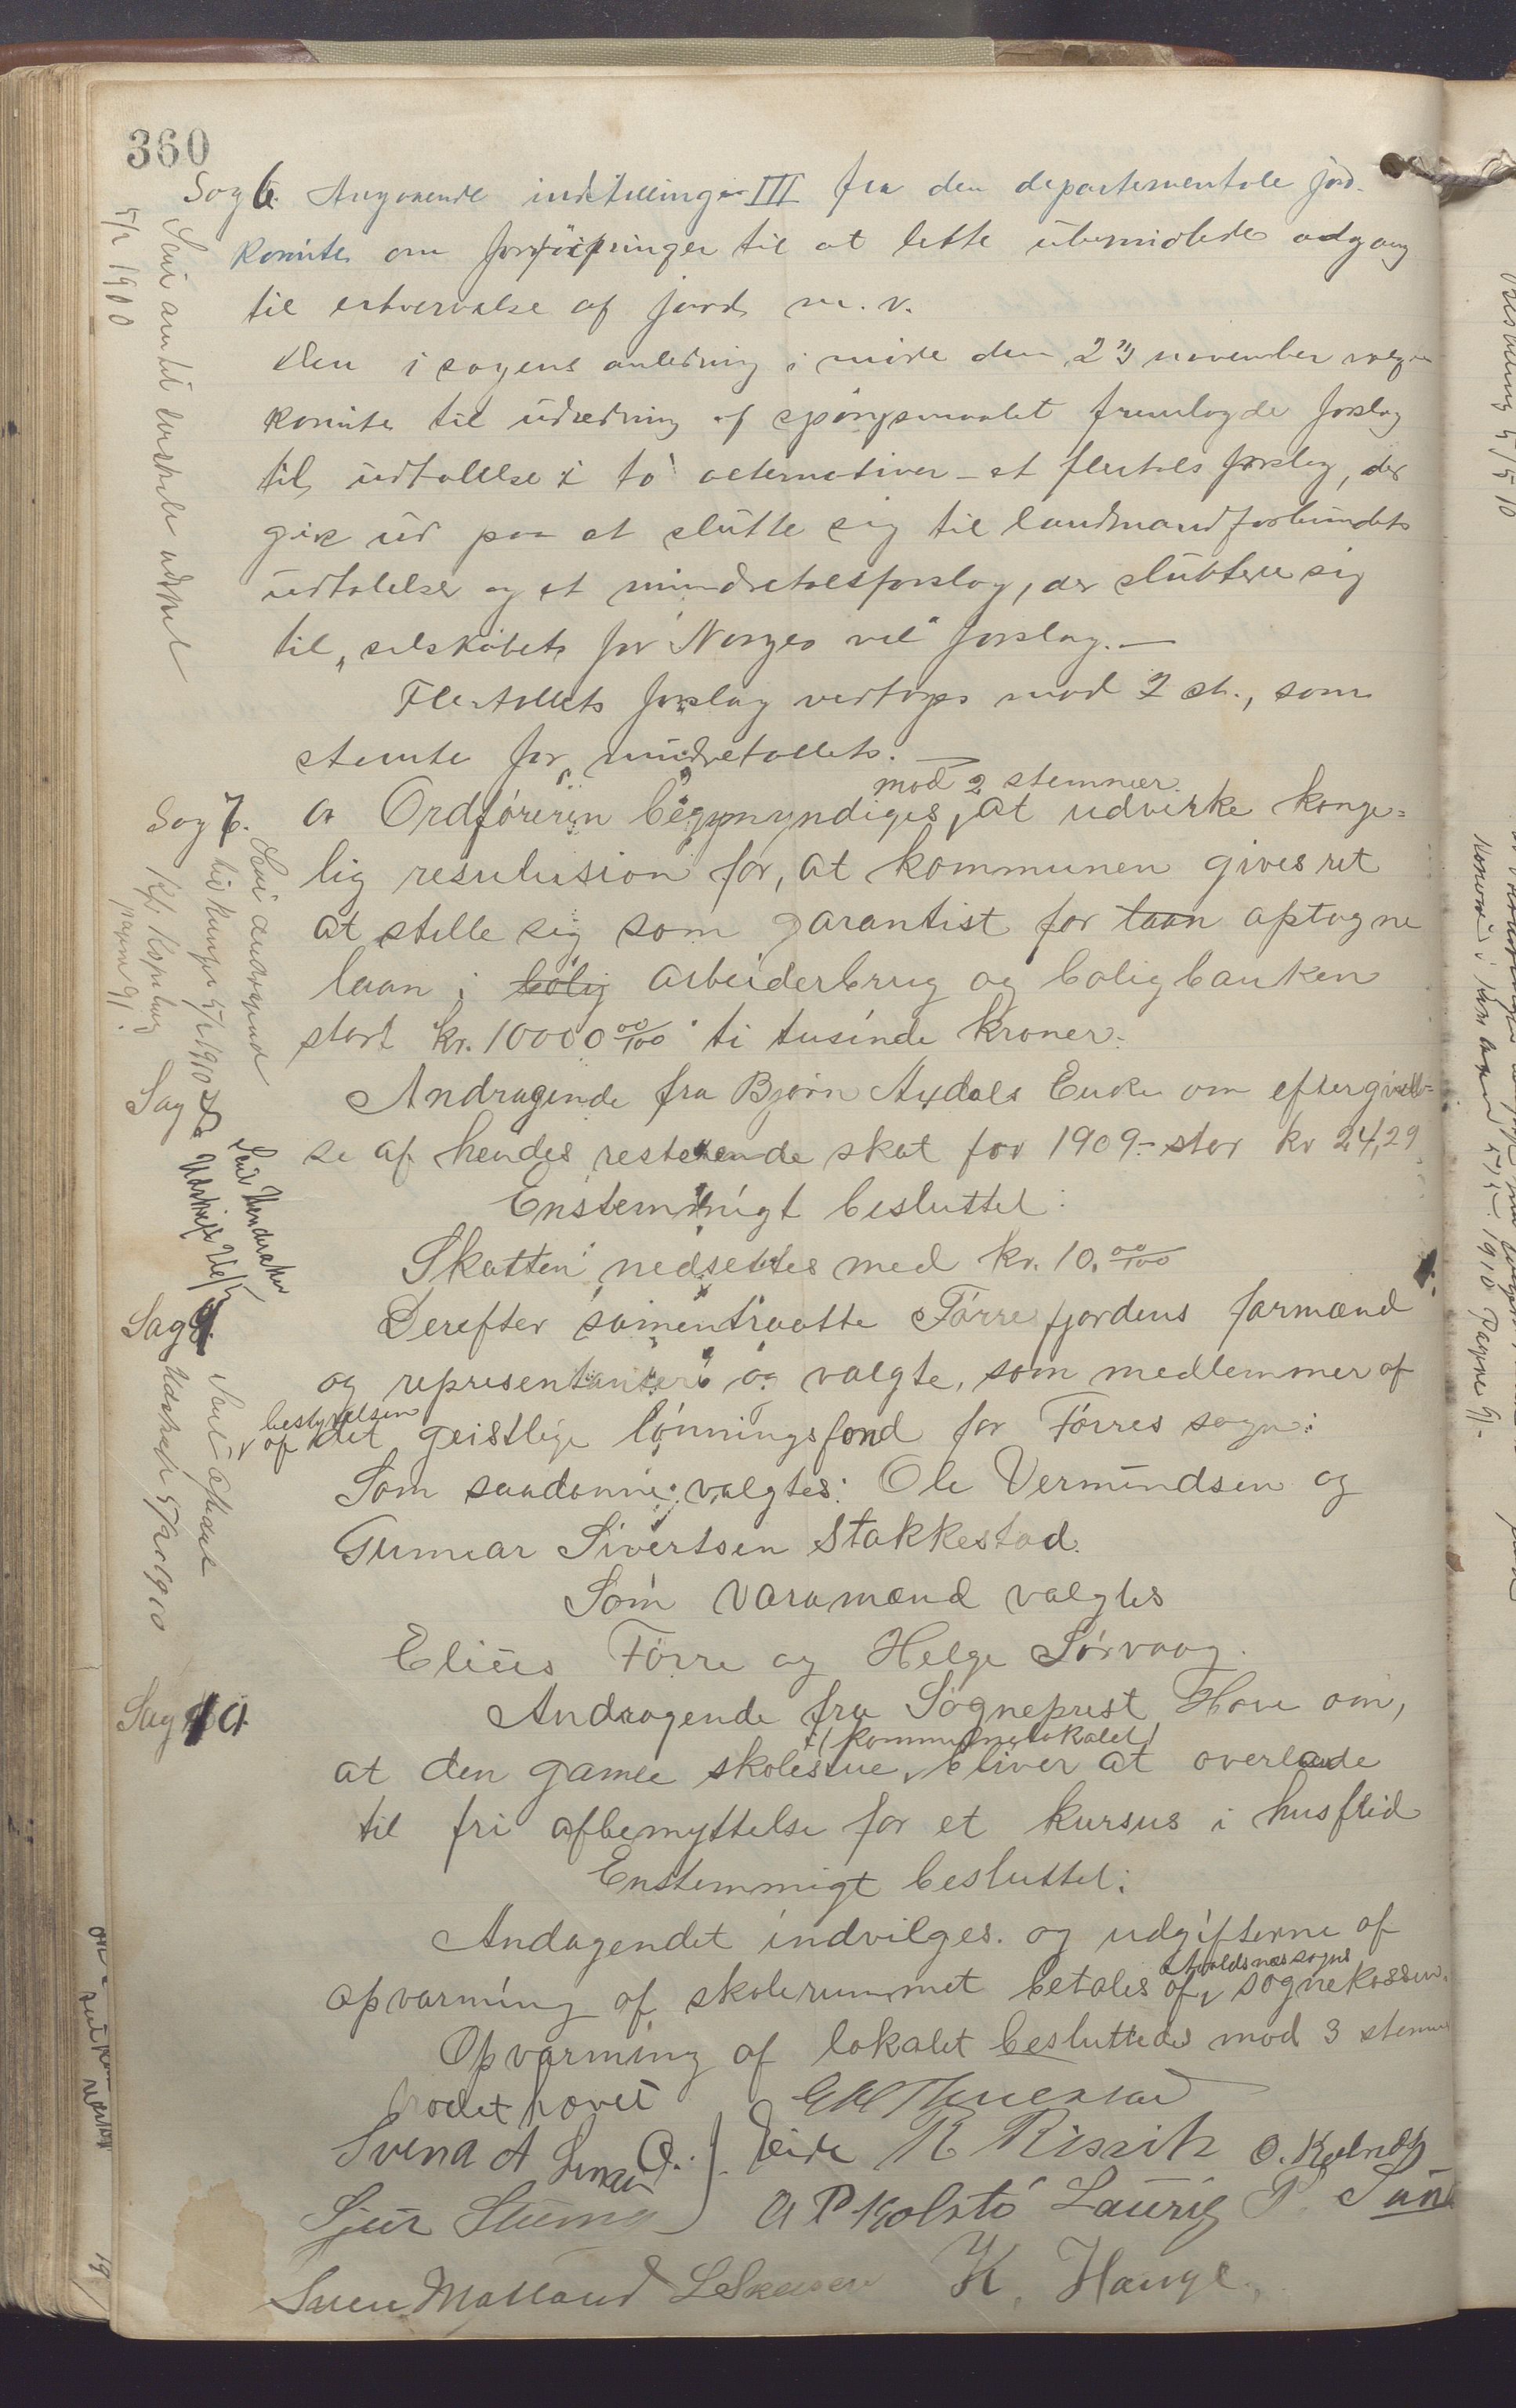 360
Sag 6. Angaaende indstilling III fra den departementale jord-
komite om forføininger til at lette ubemidlede adgang
til erhvervelse af jord m.v.
Den i sagens anledning i møde den 23 november valgte
komite til udredning af spørgsmaalet fremlagde forslag
til udtalelse i to alternativer – et flertals forslag, der
gik ud paa at slutte sig til landmandforbundets
udtalelser og et mindretalsforslag, der sluttede sig
til „selskabet for Norges vel" forslag. —
Flertallets forslag vedtoges mod 2 st., som
stemte for mindretallets. —
mod 2 stemmer.
Sag 7. a Ordføreren begymyndiges, at udvirke konge=
lig resulusion for, at kommunen gives ret
at stille sig som garantist for laan optagne
laan i bolig arbeiderbrug og boligbanken
stort kr. 10000 00/100 ti tusinde kroner.
Sag Andragende fra Bjørn Aydals Enke om eftergivel-
se af hendes resterende skat for 1909 – stor kr 24,29
Enstemmigt besluttet:
Skatten nedsettes med kr. 10. 00/100
Sag 9. Derefter samentraatte Førresfjordens formænd
og representanter og valgte, som medlemmer af
bestyrelsen
af det geistlige lønningsfond for Førres sogn:
Som saadanne valgtes: Ole Vermundsen og
Gunnar Sivertsen Stakkestad.
Som varamænd valgtes
Elieis Førre og Helge Sørvaag.
Sag 10. Andragende fra Sogneprest Hove om,
i kommunelokalet
at den gamle skolestue, bliver at overlade
til fri afbenyttelse for et kursus i husflid
Enstemmigt besluttet:
Andagendet indvilges. og udgifterne af
Avaldsnes sogns
opvarming af skolerummet betales af sognekassen.
Opvarming af lokalet besluttedes mod 3 stemmer
Mødet hævet
Svend A
O. J. Eide R Rissik
A P Kolstø Laurig P. Sund
Sjur
Sven Matland
K. Hauge.
5/2 1900
Sent amtet
udskrift 5/2 1910